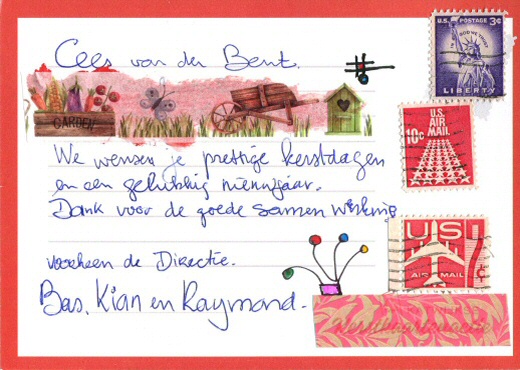 Cees van den Bent.
U.S. POSTAGE 3¢
IN GOD WE TRUST
LIBERTY
GARDEN
U.S.
AIR
MAIL
10c
We wensen je prettige kerstdagen
en een gelukkig nieuwjaar.
Dank voor de goede samen werking
US
AIR MAIL
7¢
voorheen de Directie.
Bas, Kian en Raymond.
Kerstkaartenactie